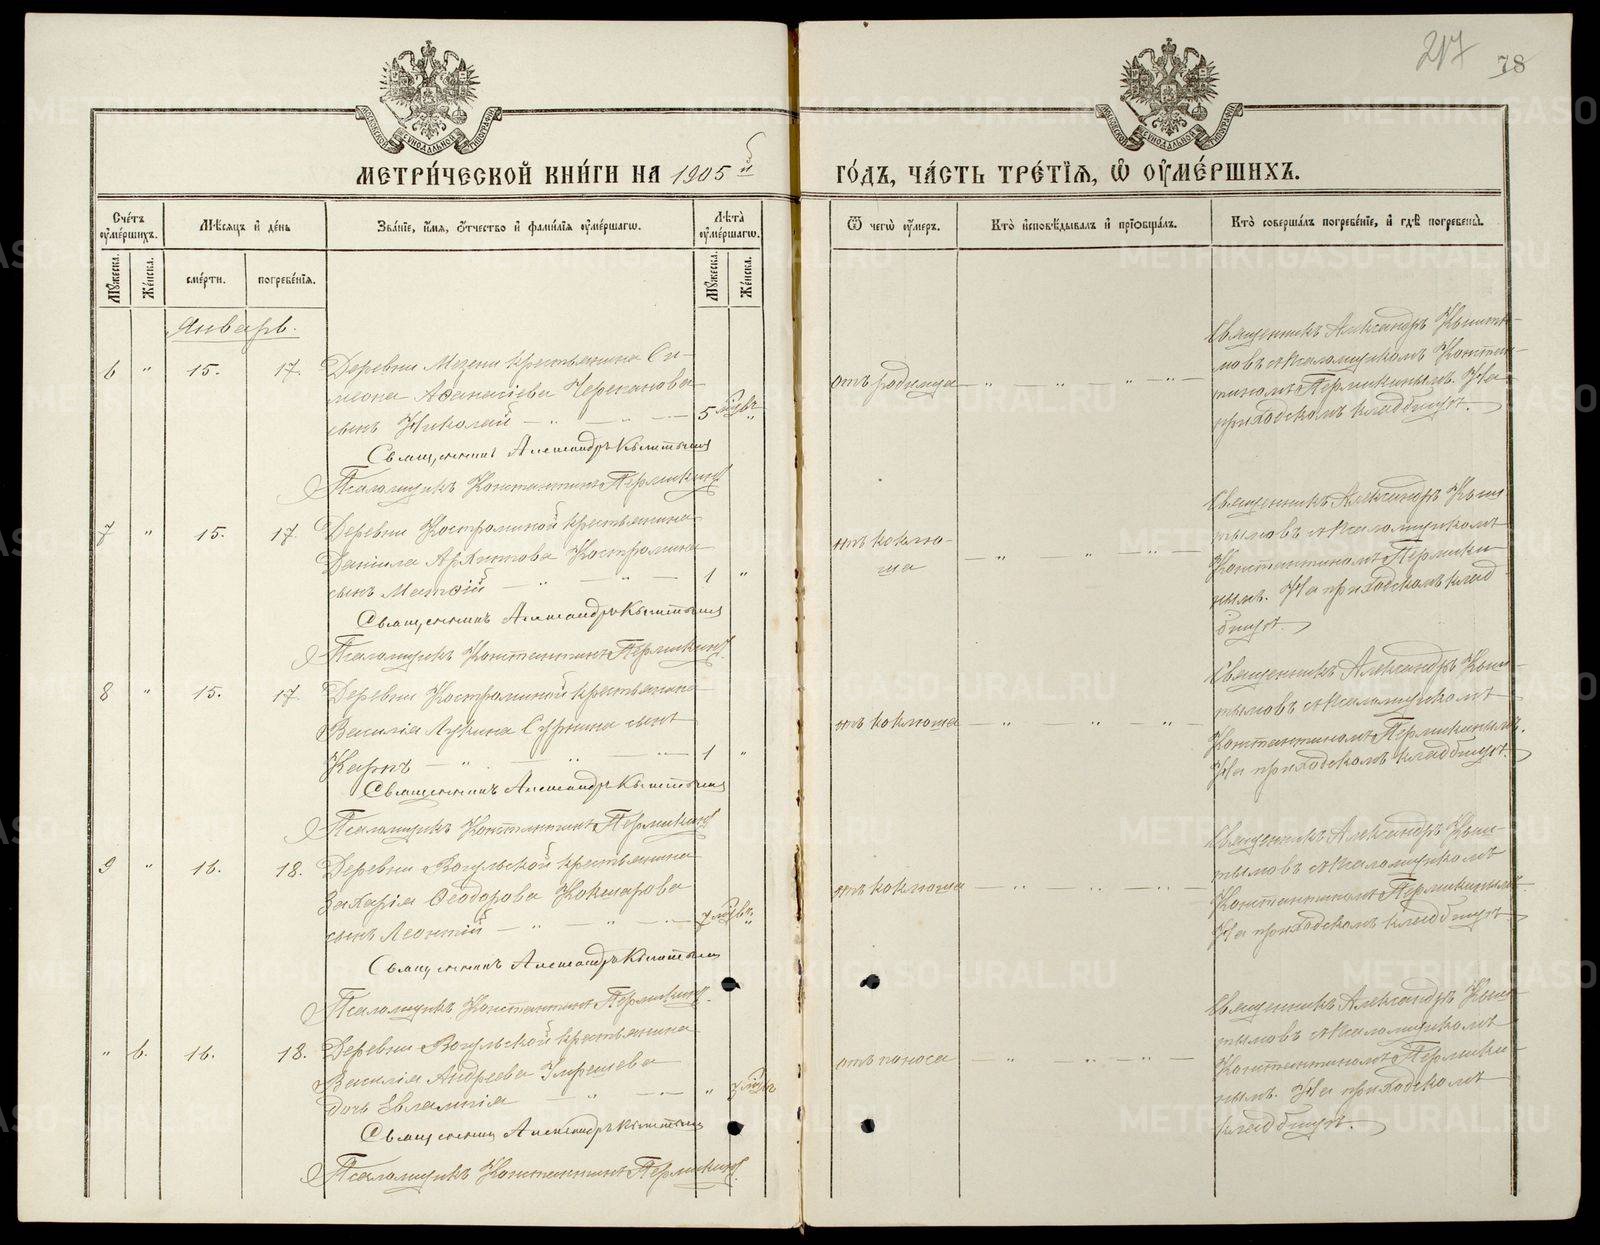 217 78
МЕТРИ́ЧЕСКОЙ КНИ́ГИ НА 1905 й
ГО́ДЪ, ЧА́СТЬ ТРЕ́ТІЯ, Ѽ ОУМЕ́РШИХЪ.
Сче́тъ оуме́ршихъ.
Мѣ́сяцъ и҆ де́нь
Зва́ніе, и҆́мя, ѻ҆́тчество и҆ фами́лія оуме́ршагѡ.
Лѣ́та оуме́ршагѡ.
Ѿ чегѡ̀ оу҆́меръ.
Кто̀ и҆сповѣ́дывалъ и҆ прїѡбща́лъ.
Кто̀ соверша́лъ погребе́ніе, и҆ гдѣ̀ погребены̀.
Му́жеска. Же́нска. сме́рти. погребе́нія. Му́жеска. Же́нска.
Январь.
6 " 15. 17. Деревни Мезени крестьянина Си-
меона Аѳанасіева Черепанова
сынъ Николай 5 мѣ
Священникъ Александръ Кыштымовъ
Псаломщикъ Константинъ Пермикинъ
отъ родимца
Священникъ Александръ Кышты-
мовъ съ псаломщикомъ Констан-
тиномъ Пермикинымъ. На
приходскомъ кладбищѣ.
7 " 15. 17. Деревни Костроминой крестьянина
Даніила Архипова Костромина
сынъ Матѳій 1 "
Священникъ Александръ Кыштымовъ
Псаломщикъ Константинъ Пермикинъ
отъ коклю-
ша
Священникъ Александръ Кыш-
тымовъ съ псаломщикомъ
Константиномъ Пермики-
нымъ. На приходскомъ клад-
бищѣ.
8 " 15. 17. Деревни Костроминой крестьянина
Василія Лукина сынъ
Карпъ 1 "
Священникъ Александръ Кыштымовъ
Псаломщикъ Константинъ Пермикинъ
отъ коклюша
Священникъ Александръ Кыш-
тымовъ съ псаломщикомъ
Константиномъ Пермикинымъ.
На приходскомъ кладбищѣ.
9 " 16. 18. Деревни Вогульской крестьянина
Захарія Ѳеодорова Кокшарова
сынъ Леонтій 7 мѣ
Священникъ Александръ Кыштымовъ
Псаломщикъ Константинъ Пермикинъ
отъ коклюша
Священникъ Александръ Кыш-
тымовъ съ псаломщикомъ
Константиномъ Пермикинымъ
На приходскомъ кладбищѣ
" 6. 16. 18. Деревни Вогульской крестьянина
Василія Андреева
дочь Евлампія " 7
Священникъ Александръ Кыштымовъ
Псаломщикъ Константинъ Пермикинъ
отъ поноса
Священникъ Александръ Кыш-
тымовъ съ псаломщикомъ
Константиномъ Пермики-
нымъ. На приходскомъ
кладбищѣ.
METRIKI.GASO-URAL.RU